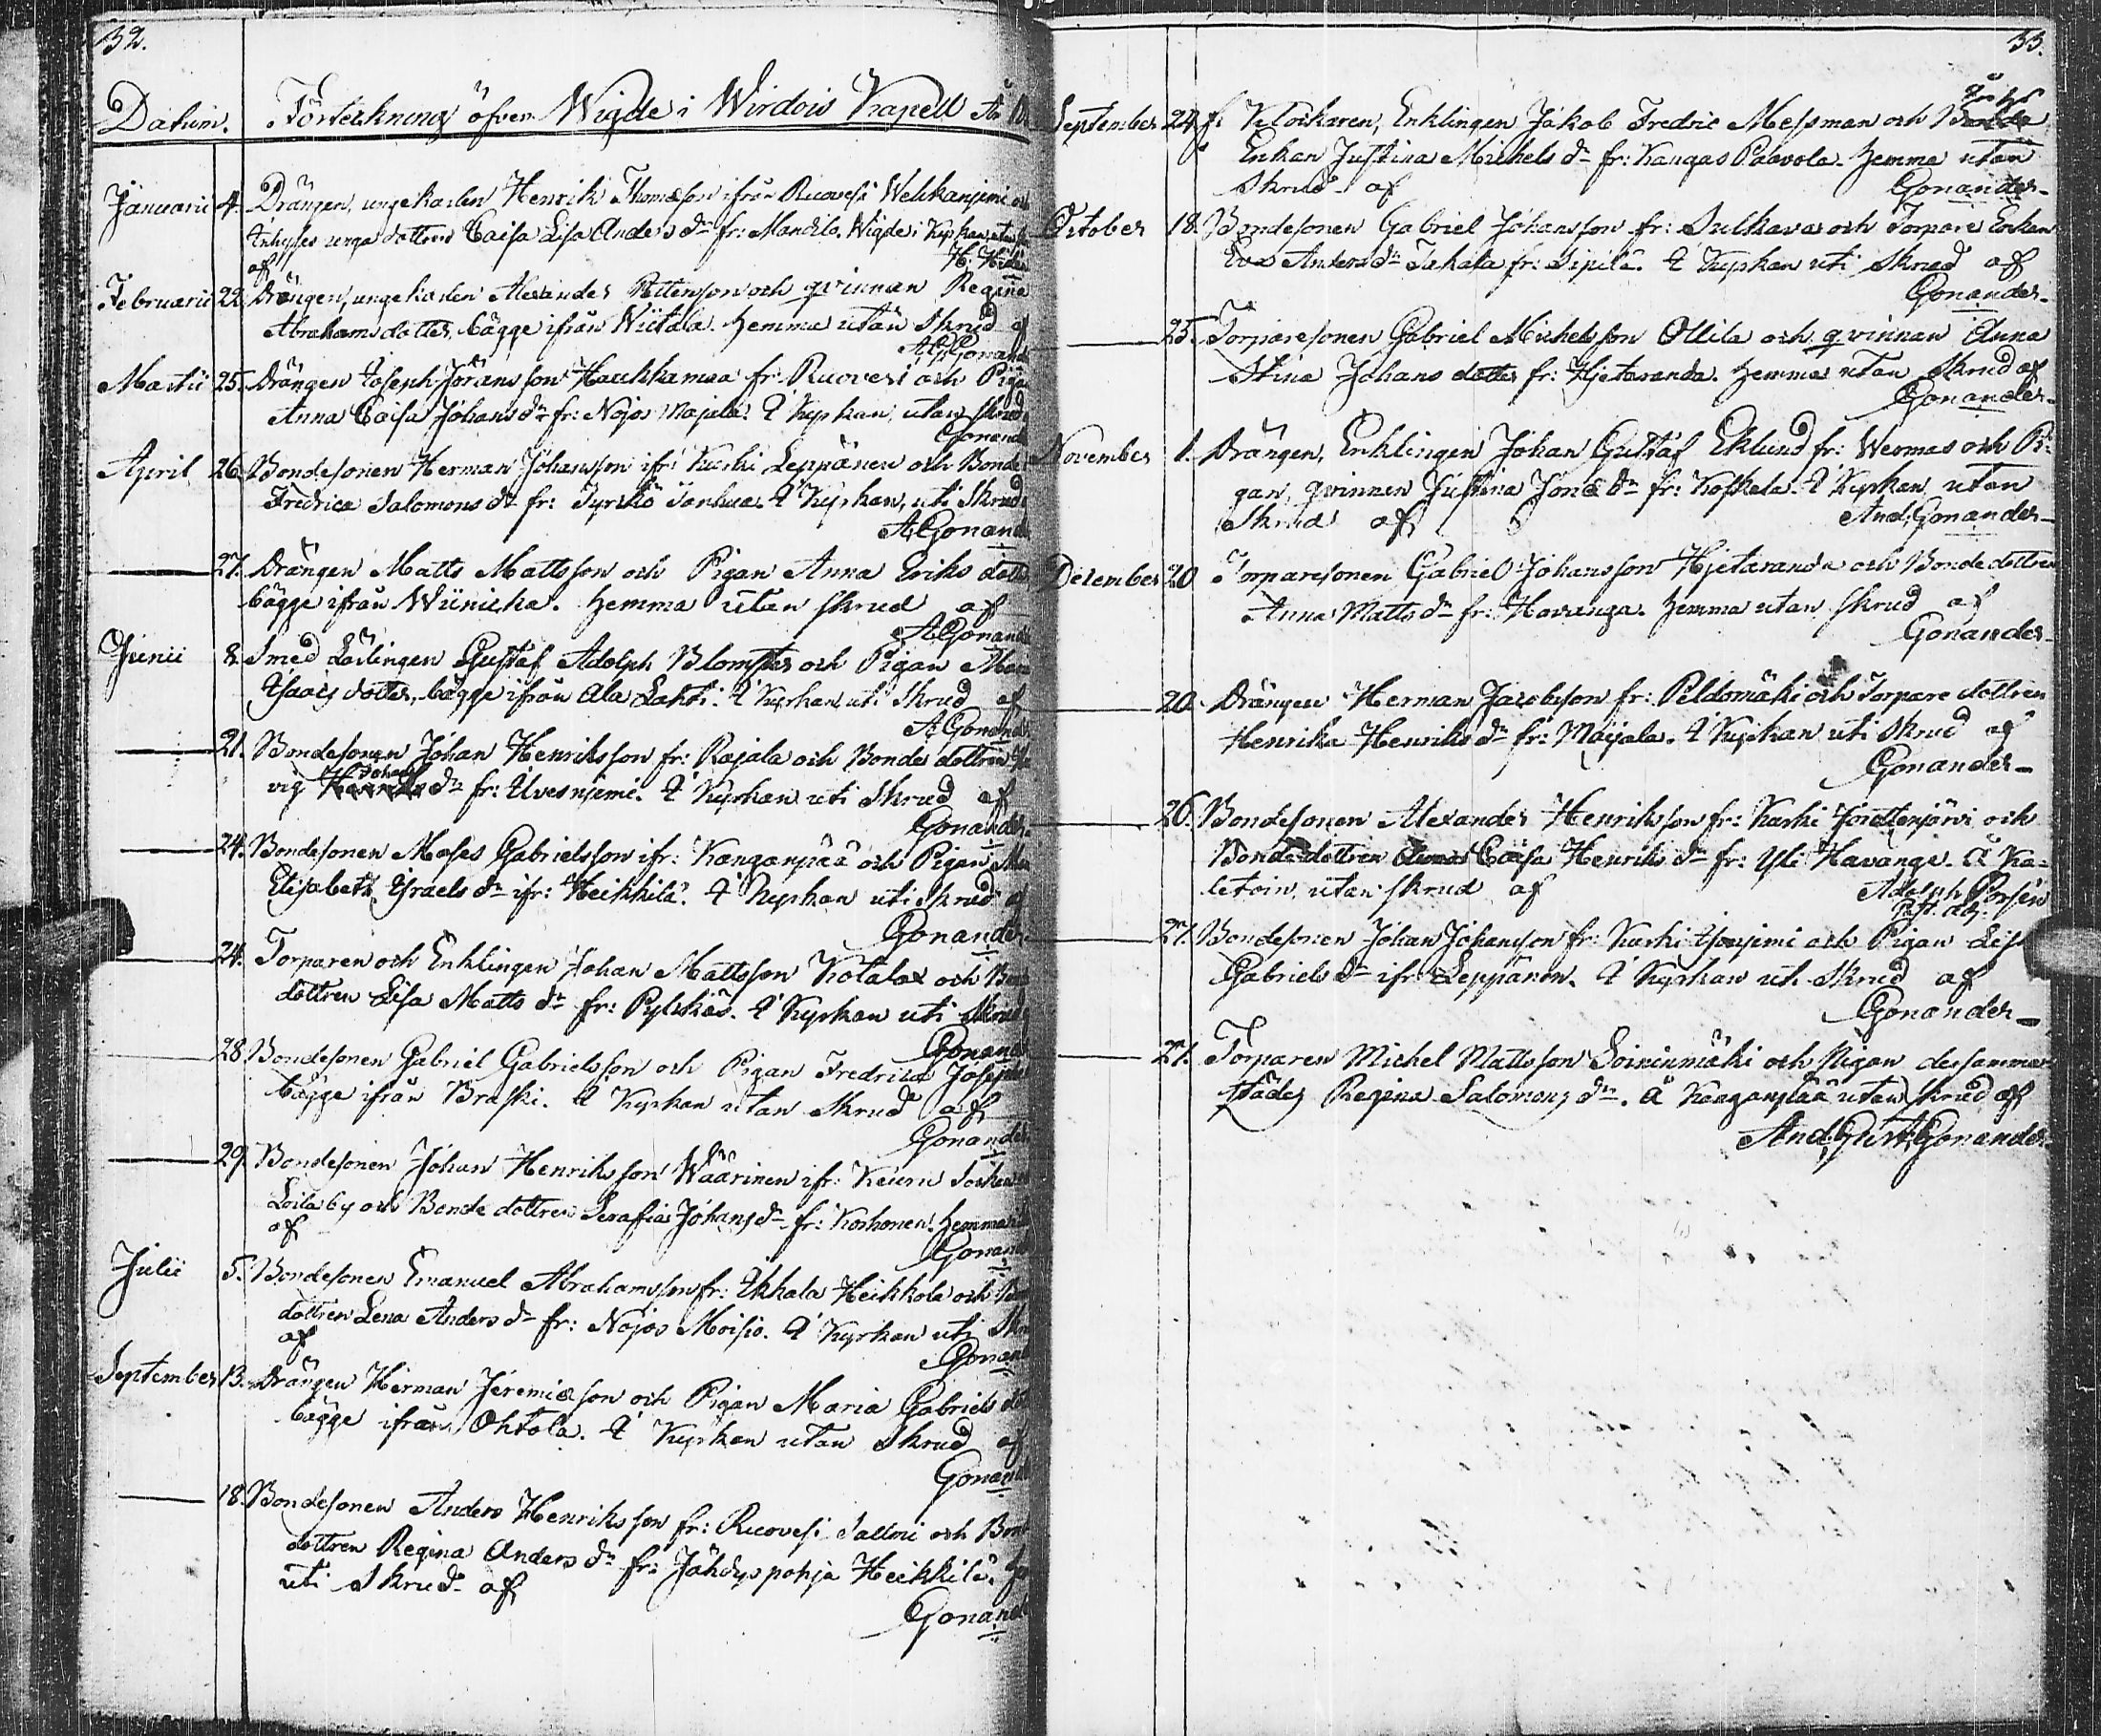 32.
Datum. Förteckning öfver Wigde i Wirdois Kapell År
Januarii 4. Drängen, ungekarlen Henrik Thomæson ifrån Ruovesi Welikanjemi och
Inhyses unga dottren Caisa Lisa Anders dr fr: Mandila. Wigde i Kyrkan utan
af H: H
Februarii 22. Drängen, ungekarlen Alexander Petterson och qvinnan Regina
Abrahams dotter, bägge ifrån Wiitala. Hemma utan Skrud af
A.G. Gonand
Martii 25. Drängen Joseph Jöransson Haukkamaa fr: Ruovesi och Piga
Anna Caisa Johans dr fr: Nojos Majala. I Kyrkan, utan Skrud
Gonand
April 26. Bondesonen Herman Johansson ifr: Kurki Leppänen och Bonde
Fredrica Salomons dr fr: Jyrkö Jankua. I Kyrkan, uti Skrud
A Gonand
27. Drängen Matts Mattsson och Pigan Anna Eriks dott
bägge ifrån Wiinicka. Hemma utan skrud af
A Gonand
Junii 8. Smed Lärlingen Gustaf Adolph Blomster och Pigan Mar
Isaacs dotter, bägge ifrån Ala Lahti. I Kyrkan uti Skrud af
A Gonand
21. Bondesonen Johan Henriksson fr: Rajala och Bonde dottren He
vig Johans dr fr: Ulvesnjemi. I Kyrkan uti Skrud af
Gonander
24. Bondesonen Moses Gabrielsson ifr: Kanganpää och Pigan Ma
Elisabeth Israels dr ifr: Heikkilä. I Kyrkan uti Skrud af
Gonander
24. Torparen och Enklingen Johan Mattsson Kotala och Bon
dottren Lisa Matts dr fr: Pylckäs. I Kyrkan uti Skrud
Gonand
28. Bondesonen Gabriel Gabrielsson och Pigan Fredrica Josephs
bägge ifrån Braski. I Kyrkan utan Skrud af
Gonander
29. Bondesonen Johan Henriksson Wäärinen ifr: Keuru Socken
Loila by och Bonde dottren Serafia Johans dr fr: Korhonen. Hemma
af Gonand
Julii 5. Bondesonen Emanuel Abrahamsson fr: Ikkala Heikkola och Bon
dottren Lena Anders dr fr: Nojos Moisio. I Kyrkan uti Skr
af Gonand
September 13. Drängen Herman Jeremiæson och Pigan Maria Gabriels dot
bägge ifrån Ohtola. I Kyrkan utan Skrud af
Gonand
18. Bondesonen Anders Henriksson fr: Ruovesi Salmi och Bond
dottren Regina Anders dr fr: Jähdyspohja Heikkilä.
uti Skrud af
Gonand
33.
September 27. f: Klockaren, Enklingen Jakob Fredric Messman och
Enkan Justina Michels dr fr: Kangas Paavola. Hemma utan
Skrud af Gonander
October 18. Bondesonen Gabriel Johansson fr: Sulkava och Torpare Enkan
Eva Anders dr Takala fr: Sipilä. I Kyrkan uti Skrud af
Gonander
25. Torparesonen Gabriel Michelsson Ollila och qvinnan Anna
Stina Johans dotter fr: Hjetaranda. Hemma utan Skrud af
Gonander
November 1. Drängen, Enklingen Johan Gustaf Eklund fr: Wermas och Pi:
gan, qvinnan Justina Jonæ dr fr: Koskela. I Kyrkan utan
Skrud af And: Gonander
December 20 Torparesonen Gabriel Johansson Hjetaranda och Bondedottren
Anna Matts dr fr: Havanga. Hemma utan skrud af
Gonander
20. Drängen Herman Jacobsson fr: Peldomäki och Torpare dottren
Henrika Henriks dr fr: Majala. I Kyrkan uti Skrud af
Gonander
26. Bondesonen Alexander Henriksson fr: Kurki och
Bondedottren Caisa Henriks dr fr: Yli Havanga. Å Ka-
letoin, utan skrud af Adolph Forsén
Past. Adj.
27. Bondesonen Johan Johansson fr: Kurki och Pigan Lisa
Gabriels dr ifr: Leppänen. I Kyrkan uti Skrud af
Gonander
27. Torparen Michel Mattsson Soininmäki och Pigan dersamma-
städes Regina Salomons dr. Å Kanganpää utan Skrud af
And: Gust: Gonander